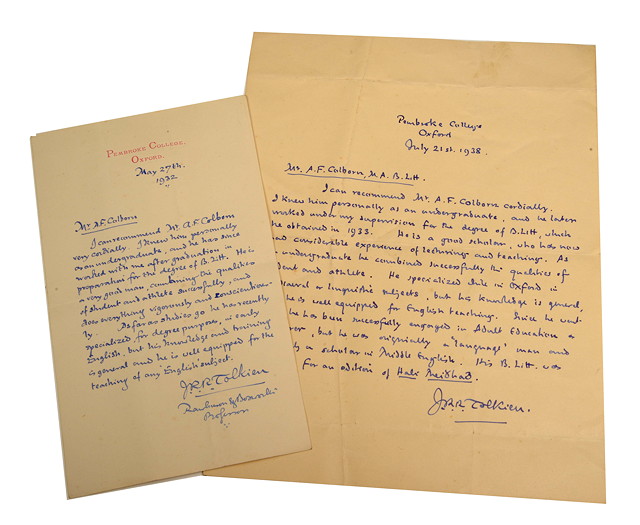 PEMBROKE COLLEGE,
OXFORD.
May 27th.
1932
Mr. A.F. Colborn
I can recommend Mr. A.F. Colborn
very cordially. I knew him personally
as an undergraduate, and he has since
worked with me after graduation in
preparation for the degree of B.Litt. He is
a very good man, combining the qualities
of student and athlete successfully, and
does everything vigorously and conscientious-
ly. As far as studies go he has recently
specialized for degree purposes, in early
English, but his knowledge and training
is general and he is well equipped for the
teaching of any English subject.
J.R.R. Tolkien
Rawlinson & Bosworth
Professor
Pembroke College
Oxford
July 21st. 1938.
Mr. A.F. Colborn, M.A. B.Litt.
I can recommend Mr. A.F. Colborn cordially.
I knew him personally as an undergraduate, and he later
worked under my supervision for the degree of B.Litt, which
he obtained in 1933. He is a good scholar, who has now
had considerable experience of lecturing and teaching. As
undergraduate he combined successfully the qualities of
student and athlete. He specialized while in Oxford in
or linguistic subjects, but his knowledge is general,
he is well equipped for English teaching. Since he went
he has been successfully engaged in Adult Education a
but he was originally a 'language' man and
a scholar in Middle English. His B.Litt. was
for an edition of Hali Meidhad.
J.R.R. Tolkien.